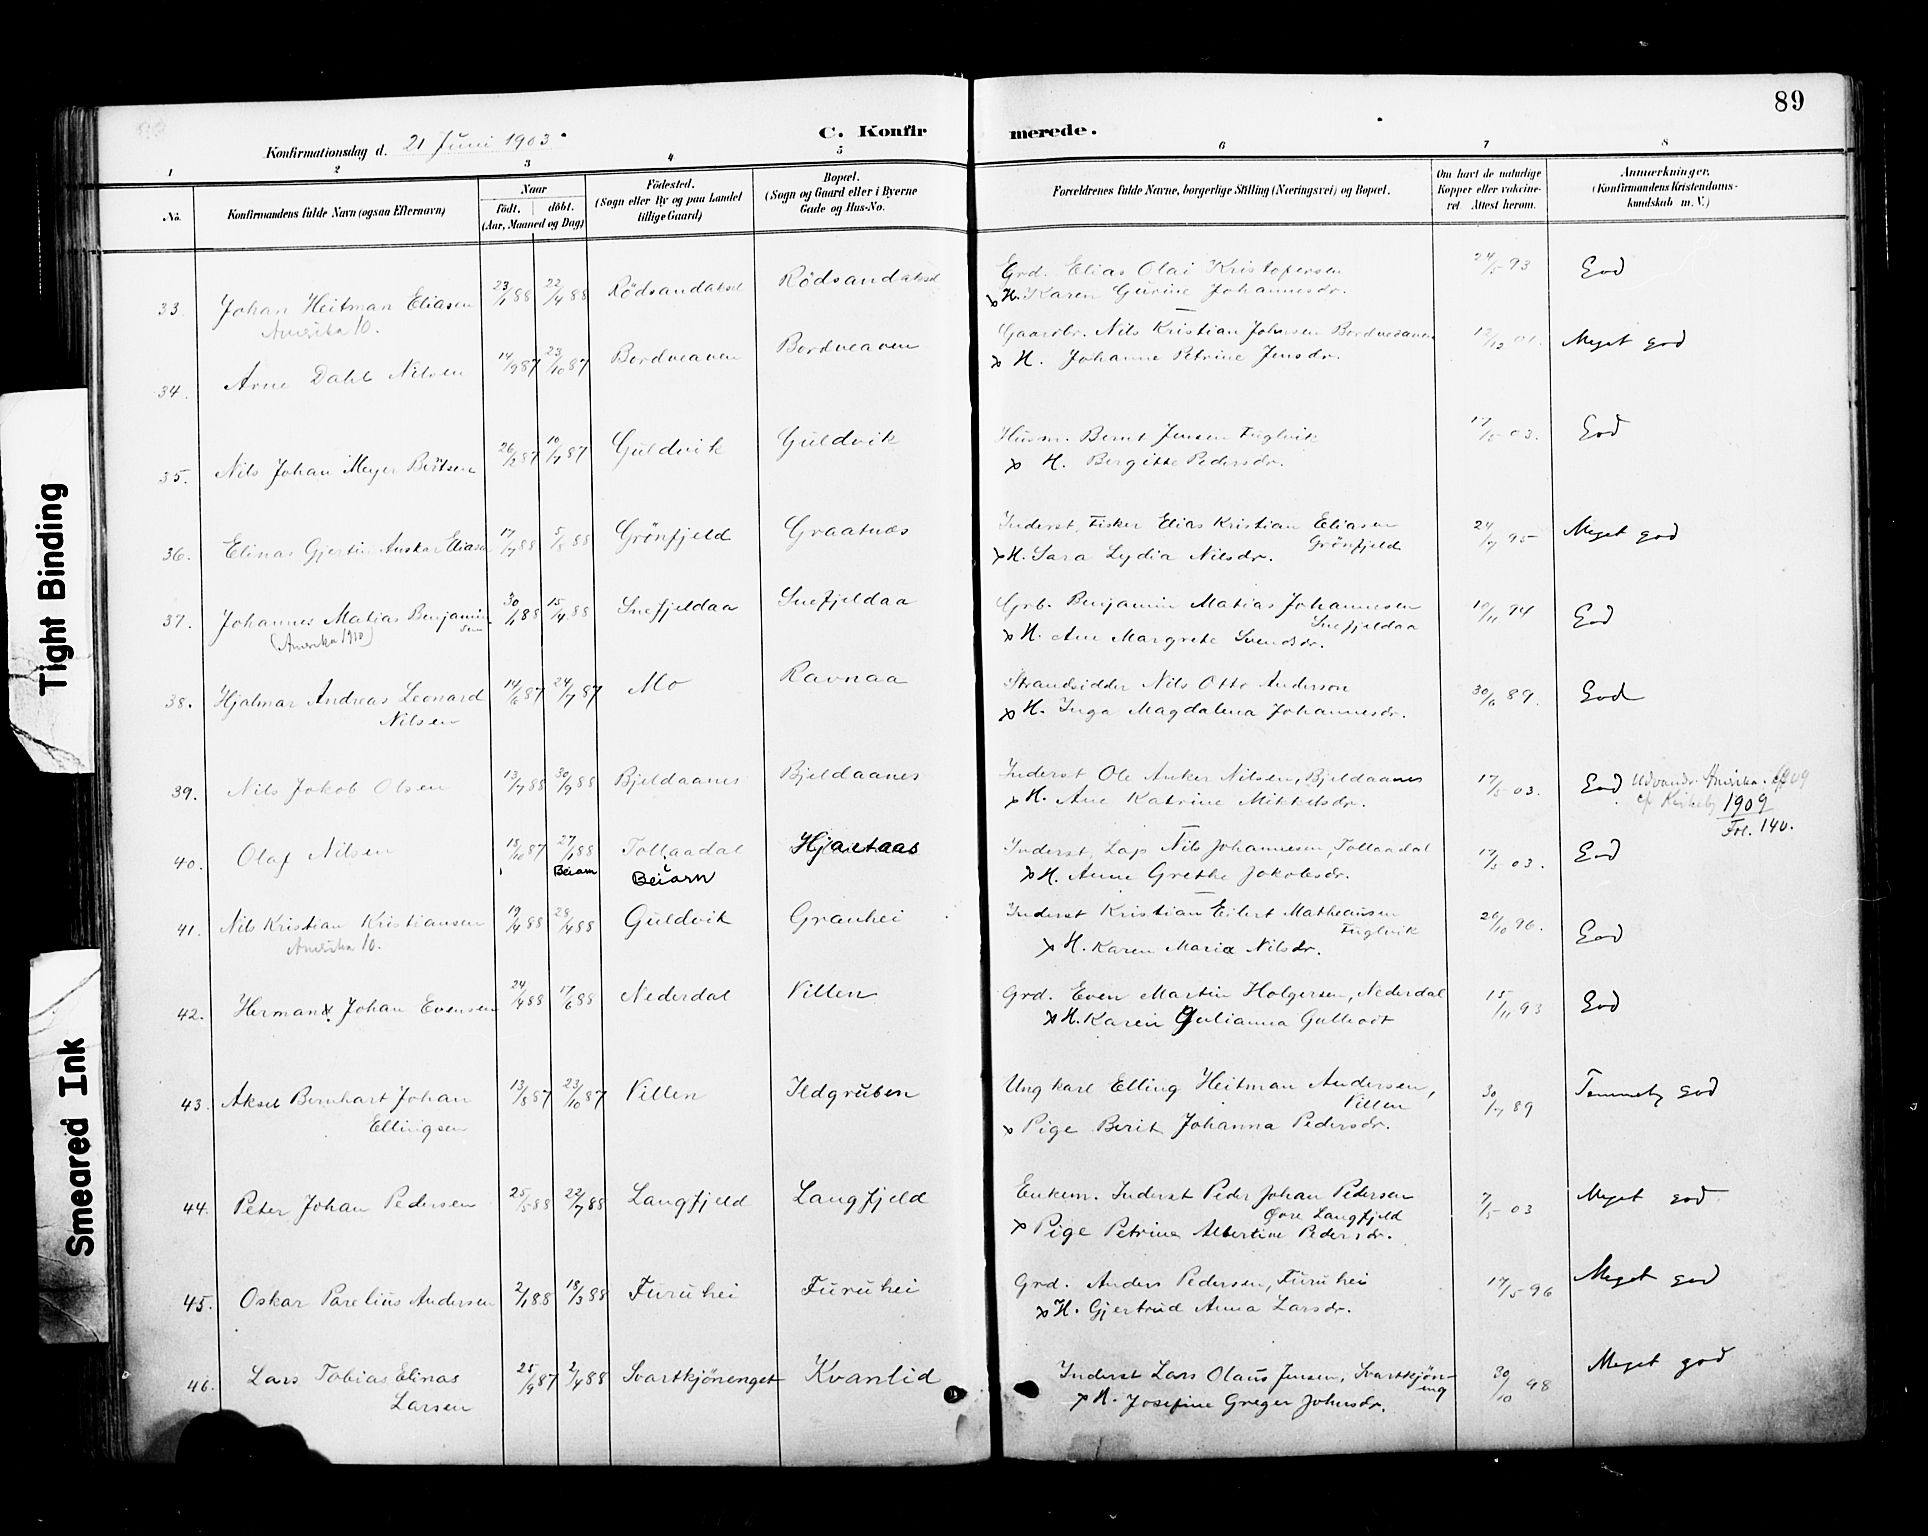 89
Konfirmationsdag d. 21 Juni 1903.
C. Konfirmerede.
1 2 3 4 5 6 7 8
No. Konfirmandens fulde Navn (ogsaa Efternavn) Naar født. døbt. (Aar, Maaned og Dag) Fødested. (Sogn eller By og paa Landet tillige Gaard) Bopæl. (Sogn og Gaard eller i Byerne Gade og Hus-No. Forældrenes fulde Navne, borgerlige Stilling (Næringsvei) og Bopæl. Om havt de naturlige Kopper eller vakcineret Attest herom. Anmærkninger. (Konfirmandens Kristendomskundskab m. V.)
33. Johan Heitman Eliasen 23/1 88 22/4 88 Rödsandaksel Rödsandaksel Grd. Elias Olai Kristofersen 24/5 93 God
Amerika 10. x H. Karen Gurine Johannesdr.
34. Arne Dahl Nilsen 14/9 87 23/10 87 Bordveaven Bordveaven Gaardbr. Nils Kristian Johnsen Bordveaven 12/12 01. Meget god
x H. Johanne Petrine Jensdr.
35. Nils Johan Meyer Berntsen 26/2 87 10/7 87 Guldvik Guldvik Husm. Bernt Jensen Fuglvik 17/5 03. God
x H. Bergitte Pedersdr.
36. Elinas Gjertin Anskar Eliasen 17/7 88 5/8 88 Grönfjeld Graatnæs Inderst, Fisker Elias Kristian Eliasen Grönfjeld 24/7 95 Meget god
x H. Sara Lydia Nilsdr.
37. Johannes Matias Benjaminsen 30/1 88 15/4 88 Snefjeldaa Snefjeldaa Grb. Benjamin Matias Johannesen Snefjeldaa 10/11 94 God
(Amerika 1910) x H. Ane Margrete Svendsdr.
38. Hjalmar Andreas Leonard 14/6 87 24/7 87 Mo Ravnaa Strandsidder Nils Otto Anderson 30/6 89. God
Nilsen x H. Inga Magdalena Johannesdr.
39. Nils Jakob Olsen 13/7 88 30/9 88 Bjeldaanes Bjeldaanes Inderst Ole Anker Nilsen, Bjeldaanes 17/5 03. God Udvandr. Amerika
x H. Ane Katrine Mikkelsdr. 1909
Fol. 140.
40. Olaf Nilsen 18/10 87 27/1 88 Tollaadal Hjartaas Inderst, Lap Nils Johannesen, Tollaadal 17/5 03. God
Beiarn Beiarn x H. Anne Grethe Jakobsdr.
41. Nils Kristian Kristiansen 19/4 88 28/4 88 Guldvik Granhei Inderst Kristian Eilert Matheausen Fuglvik 26/10 96. God
Amerika 10. x H. Karen Maria Nilsdr.
42. Herman Johan Evensen 24/4 88 17/6 88 Nederdal Villen Grd. Even Martin Holgersen, Nederdal 15/11 93 God
x H. Karen Julianna Gullesdt
43. Aksel Bernhart Johan 13/8 87 23/10 87 Villen Ildgruben Ungkarl Elling Heitman Andersen, Villen 30/7 89 Temmelig god
Ellingsen x Pige Berit Johanna Pedersdr.
44. Peter Johan Pedersen 25/5 88 22/7 88 Langfjeld Langfjeld Enkem. Inderst Peder Johan Pedersen Øvre Langfjeld 7/5 03 Meget god
x Pige Petrine Albertine Pedersdr.
45. Oskar Parelius Andersen 2/1 88 18/3 88 Furuhei Furuhei Grd. Anders Pedersen, Furuhei 17/5 96 Meget god
x H. Gjertrud Anna Larsdr.
46. Lars Tobias Elinas 25/9 87 2/4 88 Svartkjönenget Kvanlid Inderst Lars Olaus Jensen, Svartkjöneng 30/10 98 Meget god
Larsen x H. Josefine Greger Johnsdr.
Tight Binding
Smeared Ink